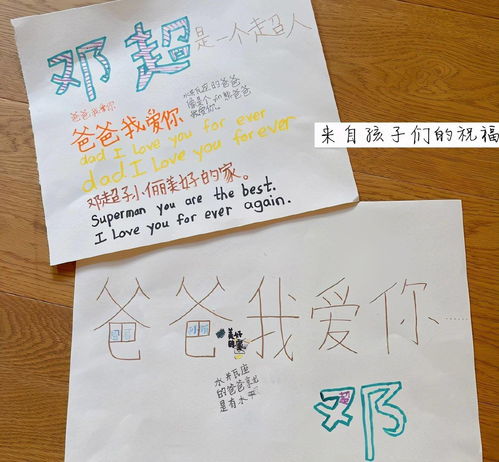 邓超是一个超人
爸爸我爱你
水瓶座的爸爸
爸爸我爱你
dad I love you for ever
dad I love you forever
邓超孑小俪美好的家。
Superman you are the best.
I Love you for ever again.
来自孩子们的祝福
爸爸我爱你……
美好
水井瓦座
的爸爸拿出
是有水平
邓超